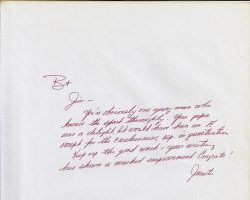 B+
Jim —
You're obviously one young man who
knows the sport thoroughly. Your paper
was a delight & would have been an A
except for the carelessness, esp in punctuation.
Keep up the good work — your writing
has shown a marked improvement. Congrats!